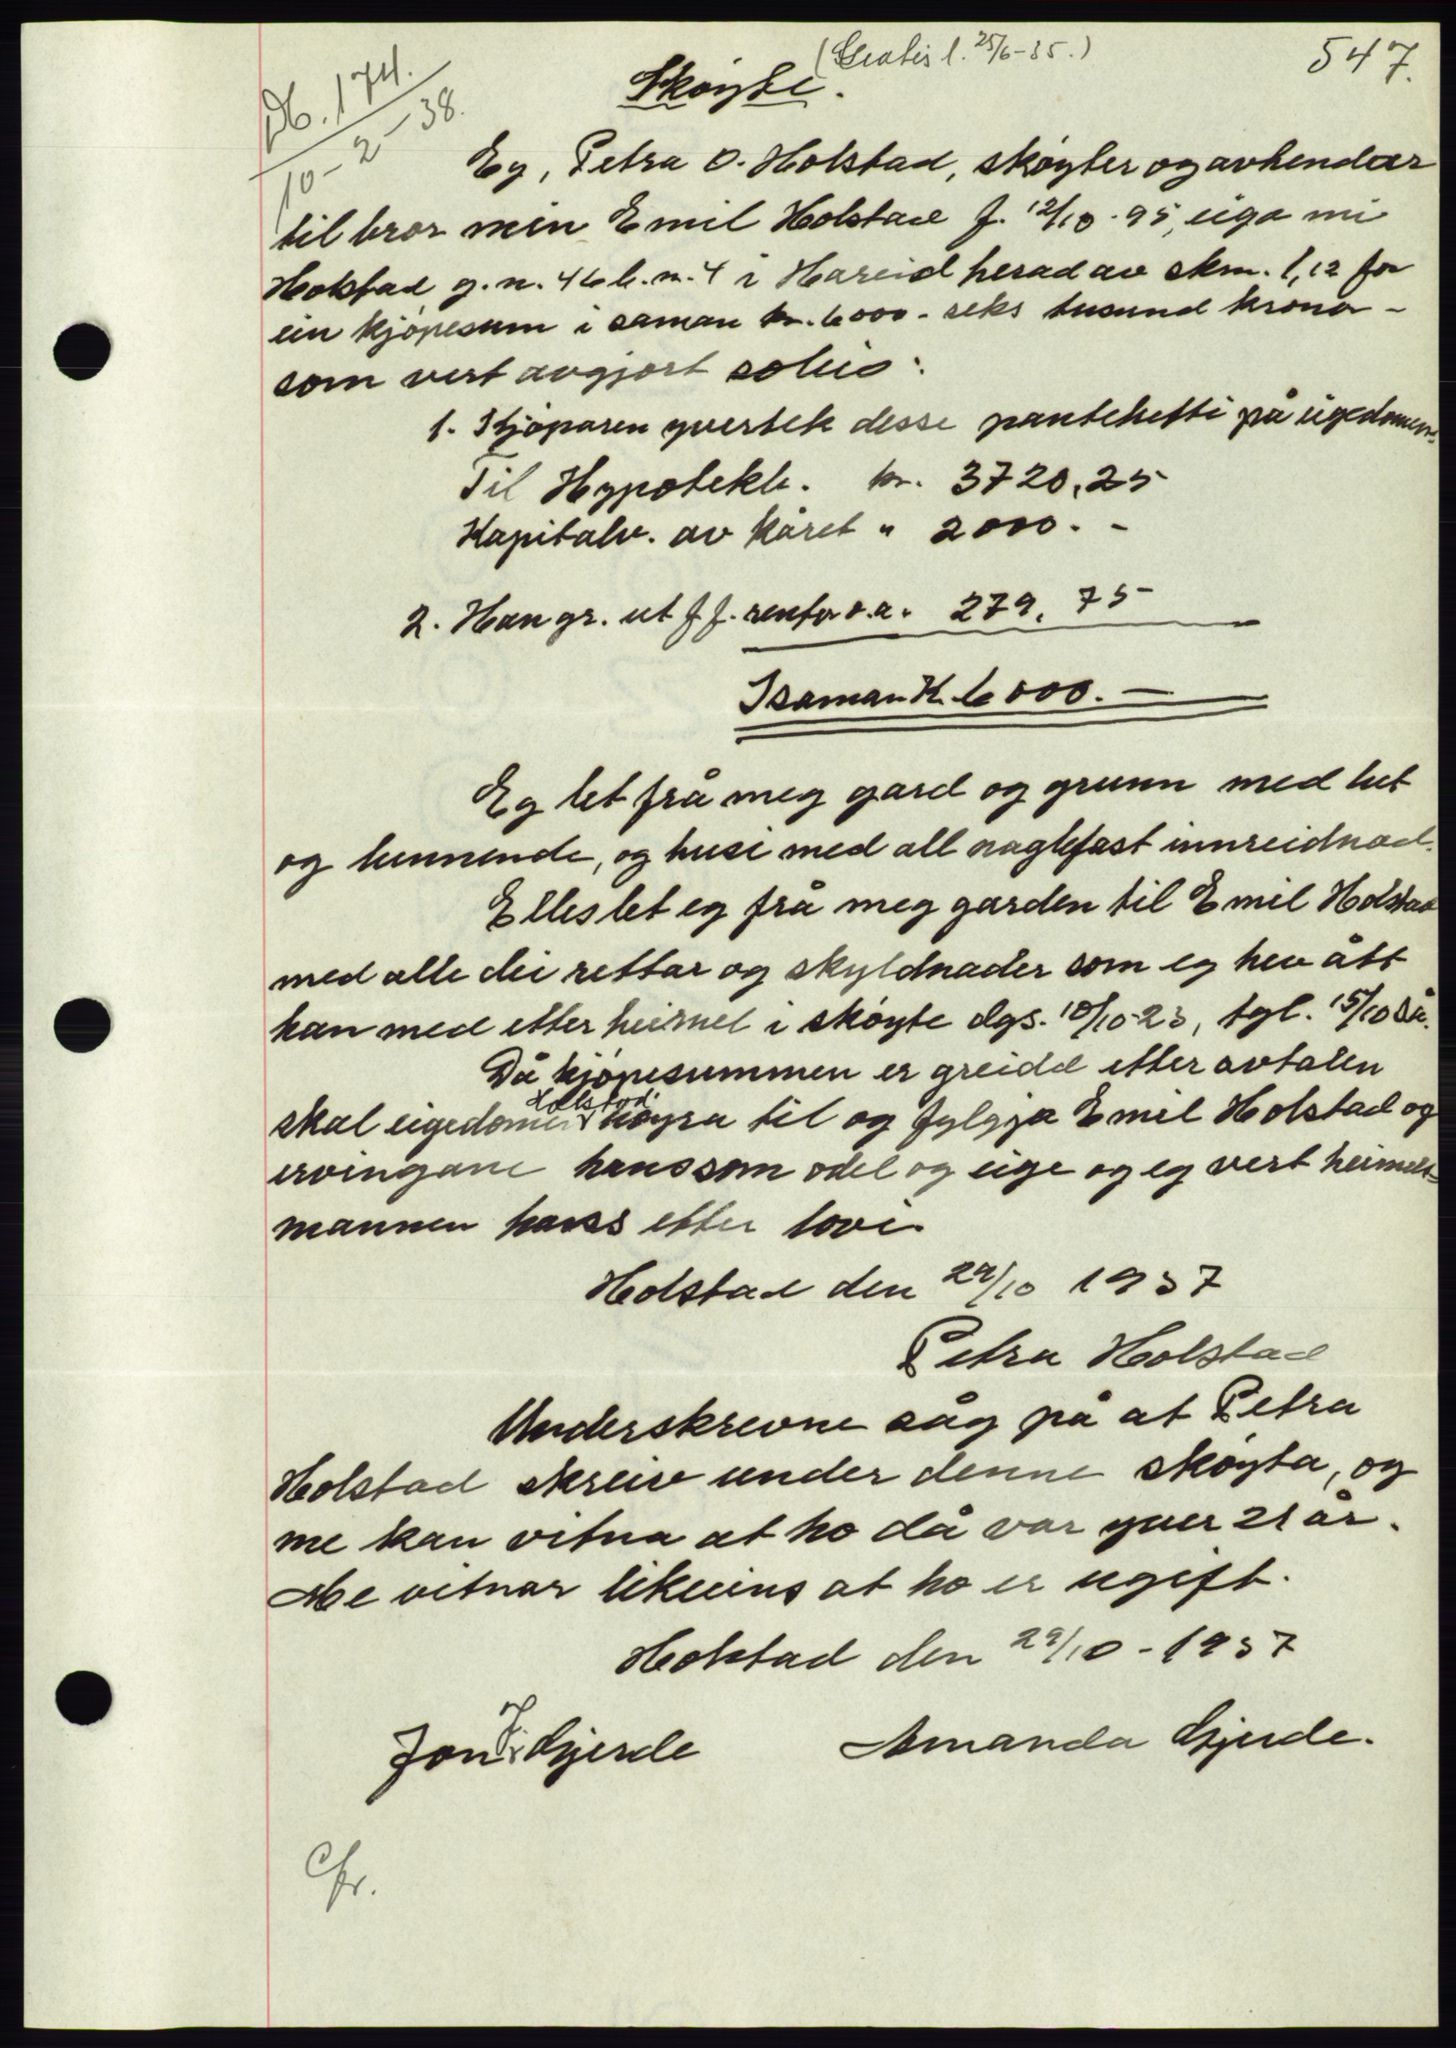 (Gratis l. 25/6-35.)
547.
Db. 174.
10-2-38.
Skøyte.
Eg, Petra O. Holstad, skøyter og avhendar
til bror min Emil Holstad f. 12/10-95, eiga mi
Holstad g.n. 46 b.n. 4 i Hareid herad av skm. 1,12 for
ein kjøpesum i saman kr. 6000- seks tusund kronor-
som vert avgjort soleis:
1. Kjøparen yvertek desse pantehefti på eigedomen:
Til Hypotekb. kr. 3720,25
Kapitalv. av kåret " 2000.-
2. Han gr. ut f.f. rentor o.a. " 279,75
Isaman K. 6000.-
Eg let frå meg gard og grunn med lut
og lunnende, og husi med all naglefast innreidnad.
Elles let eg frå meg garden til Emil Holstad
med alle dei rettar og skyldnader som eg hev ått
han med etter heimel i skøyte dgs. 10/10-23, tgl. 15/10 s.å.
Då kjøpesummen er greidd etter avtalen
Holstad
skal eigedomen høyra til og fylgja Emil Holstad og
ervingane hans som odel og eige og eg vert heimels-
mannen hans etter lovi.
Holstad den 29/10 1937
Petra Holstad
Underskrevne såg på at Petra
Holstad skreiv under denne skøyta, og
me kan vitna at ho då var yver 21 år.
Me vitnar likeeins at ho er ugift.
Holstad den 29/10-1937
Jon J. Gjerde Amanda Gjerde.
Cfr.